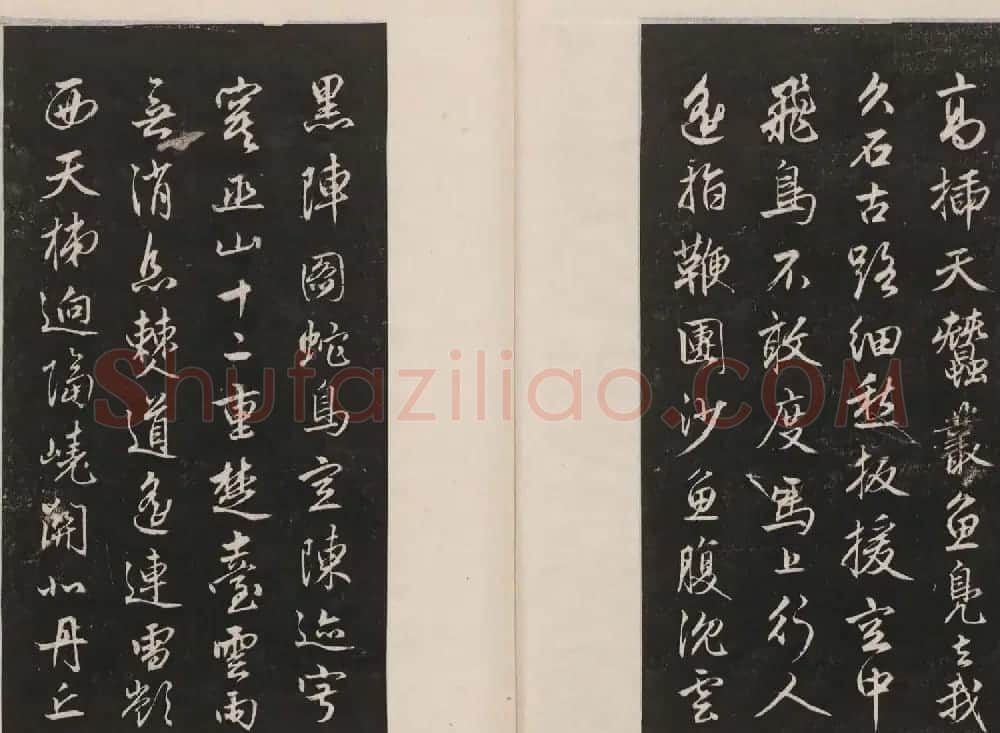 高插天蠶叢魚鳧去我
久石古路細愁扳援空中
飛鳥不敢度馬上行人
遙指鞭團沙魚腹沉雲
黑陣圖蛇鳥空陳迹寂
寞巫山十二重楚臺雲雨
無消息棘道遙連雪嶺
西天梯迥隔嶢關北丹丘
Shufaziliao.COM